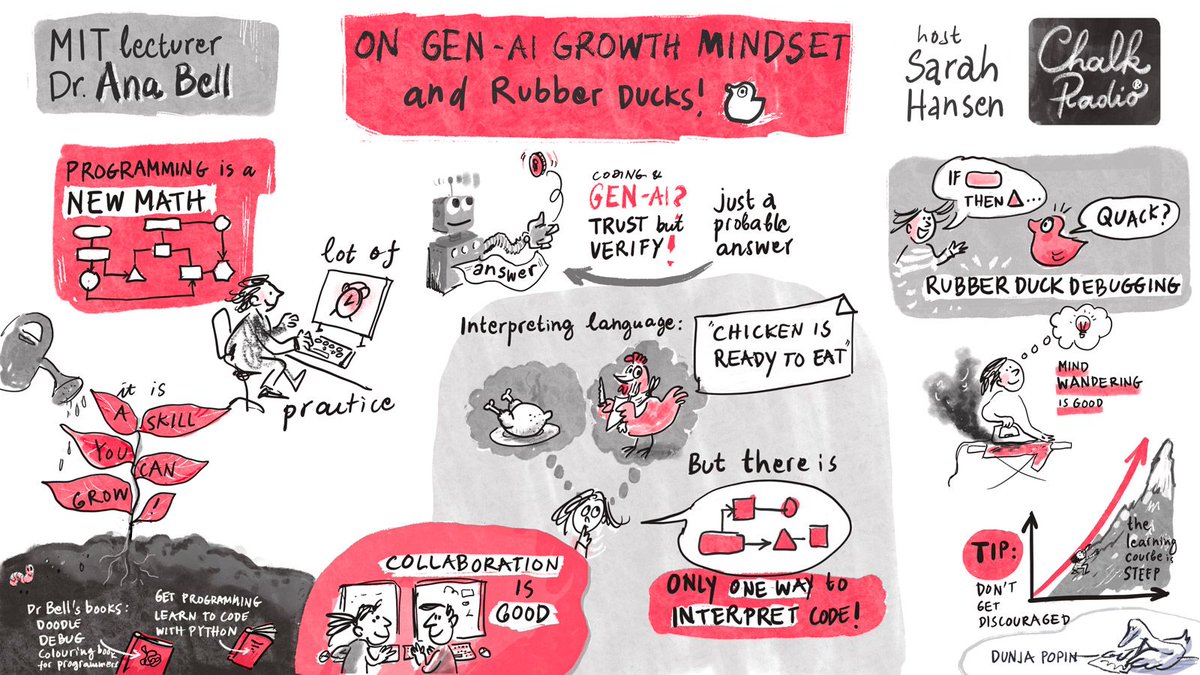 MIT lecturer
Dr. Ana Bell
ON GEN-AI GROWTH MINDSET
and RUBBER DUCKS!
host
Sarah
Hansen
Chalk
Radio®
PROGRAMMING is a
NEW MATH
lot of
practice
it is
A SKILL
YOU CAN
GROW!
Dr Bell's books:
DOODLE
DEBUG
Colouring book
for programmers
GET PROGRAMMING
LEARN TO CODE
WITH PYTHON
CODING &
GEN-AI?
TRUST but
VERIFY!
just a
probable
answer
answer
Interpreting language:
"CHICKEN IS
READY TO EAT"
But there is
ONLY ONE WAY to
INTERPRET CODE!
COLLABORATION
IS
GOOD
IF
THEN ...
QUACK?
RUBBER DUCK DEBUGGING
MIND
WANDERING
IS GOOD
TIP:
DON'T
GET
DISCOURAGED
the
learning
course is
STEEP
DUNJA POPIN